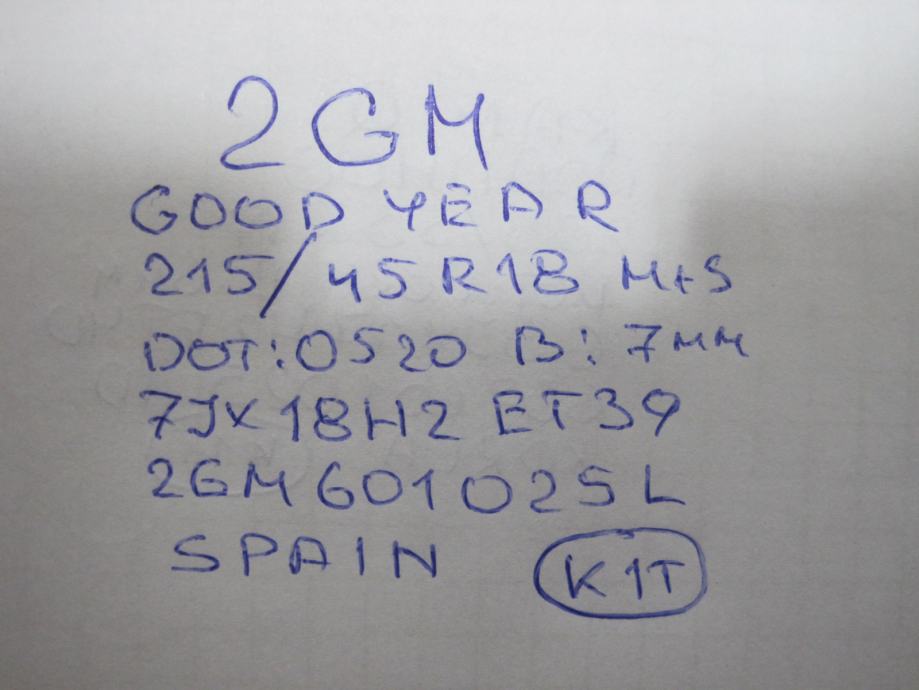 2GM
GOOD YEAR
215/45R18 M+S
DOT:0520 B: 7MM
7JX18H2 ET39
2GM601025L
SPAIN K1T